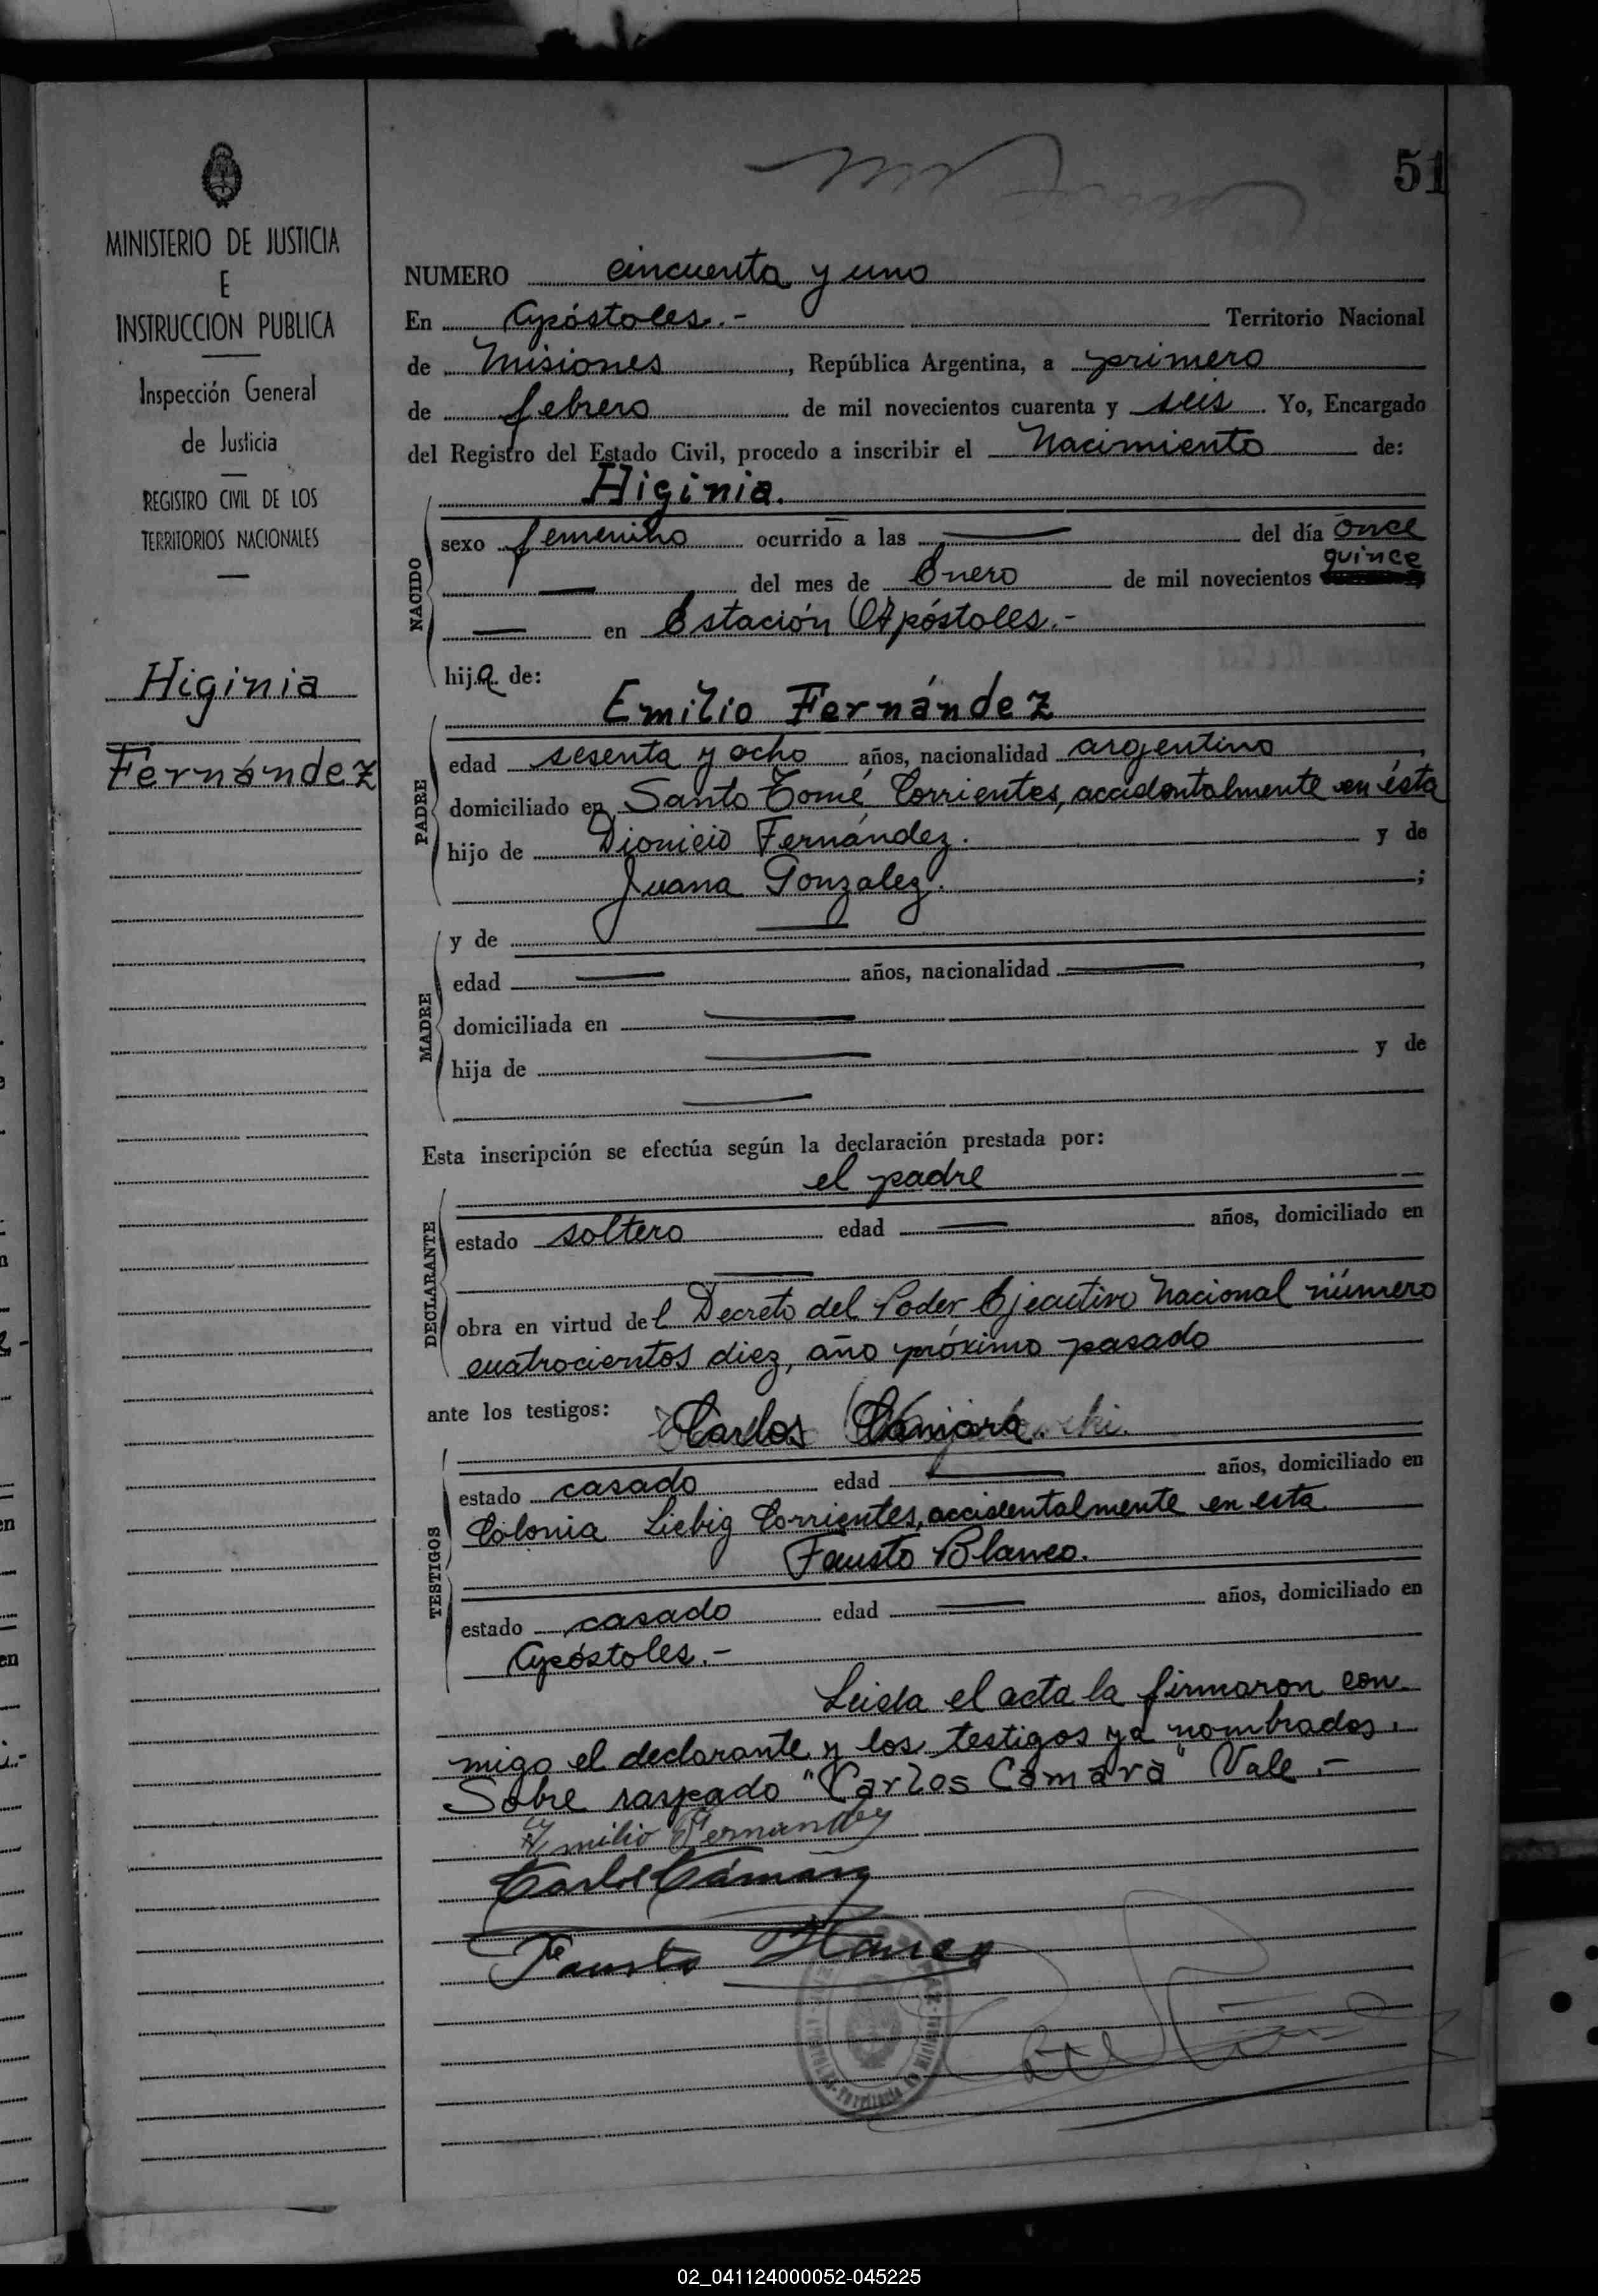 51
MINISTERIO DE JUSTICIA
E
INSTRUCCION PUBLICA
Inspección General
de Justicia
REGISTRO CIVIL DE LOS
TERRITORIOS NACIONALES
Higinia
Fernández
NUMERO cincuenta y uno
En Apóstoles.- Territorio Nacional
de Misiones, República Argentina, a primero
de febrero de mil novecientos cuarenta y seis. Yo, Encargado
del Registro del Estado Civil, procedo a inscribir el Nacimiento de:
Higinia.
NACIDO
sexo femenino ocurrido a las — del día once
— del mes de Enero de mil novecientos quince
— en Estación Apóstoles.-
hija de:
Emilio Fernández
PADRE
edad sesenta y ocho años, nacionalidad argentino,
domiciliado en Santo Tomé Corrientes, accidentalmente en ésta
hijo de Dionicio Fernández. y de
Juana Gonzalez. ;
MADRE
y de —
edad — años, nacionalidad —,
domiciliada en —
hija de — y de
—
Esta inscripción se efectúa según la declaración prestada por:
el padre
DECLARANTE
estado soltero edad — años, domiciliado en
—
obra en virtud del Decreto del Poder Ejecutivo Nacional número
cuatrocientos diez, año próximo pasado
ante los testigos: Carlos Cámara.
TESTIGOS
estado casado edad — años, domiciliado en
Colonia Liebig Corrientes, accidentalmente en esta
Fausto Blanco.
estado casado edad — años, domiciliado en
Apóstoles.-
Leida el acta la firmaron con-
migo el declarante y los testigos ya nombrados.
Sobre raspado "Carlos Cámara" Vale.-
Emilio Fernandez
Carlos Cámara
Fausto Blanco
02_041124000052-045225